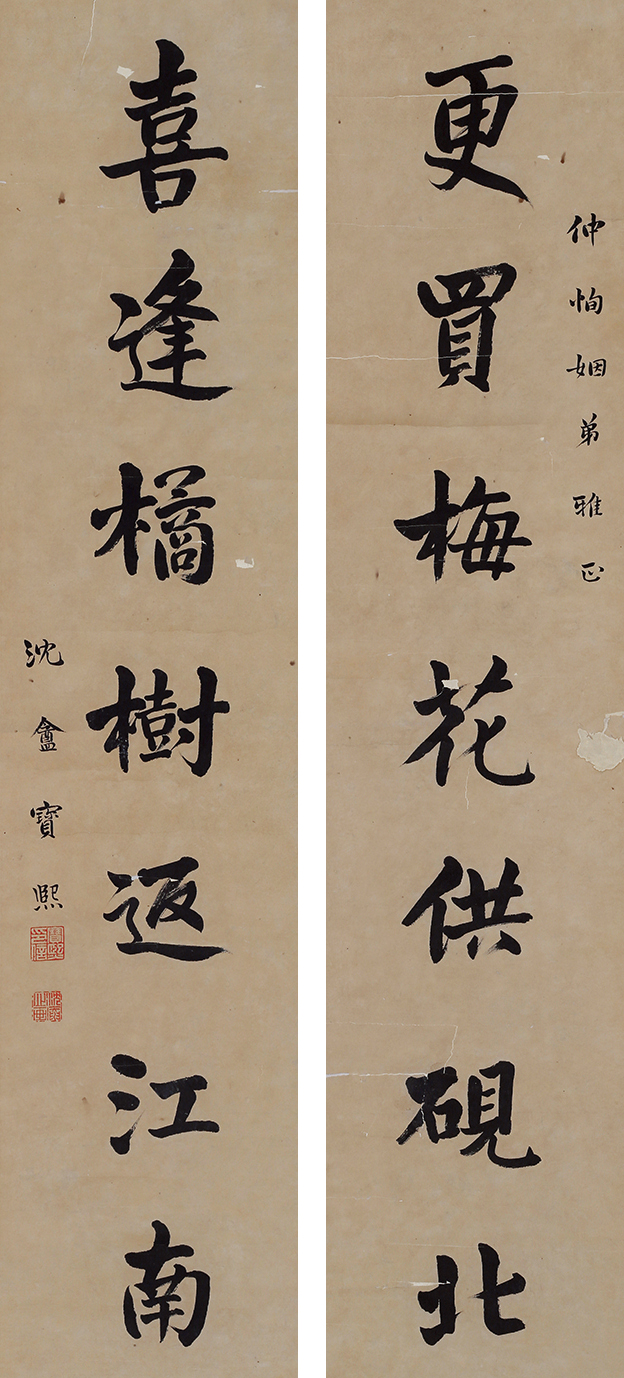 仲恂姻弟雅正
更買梅花供硯北
喜逢橘樹返江南
沈盦寶熙